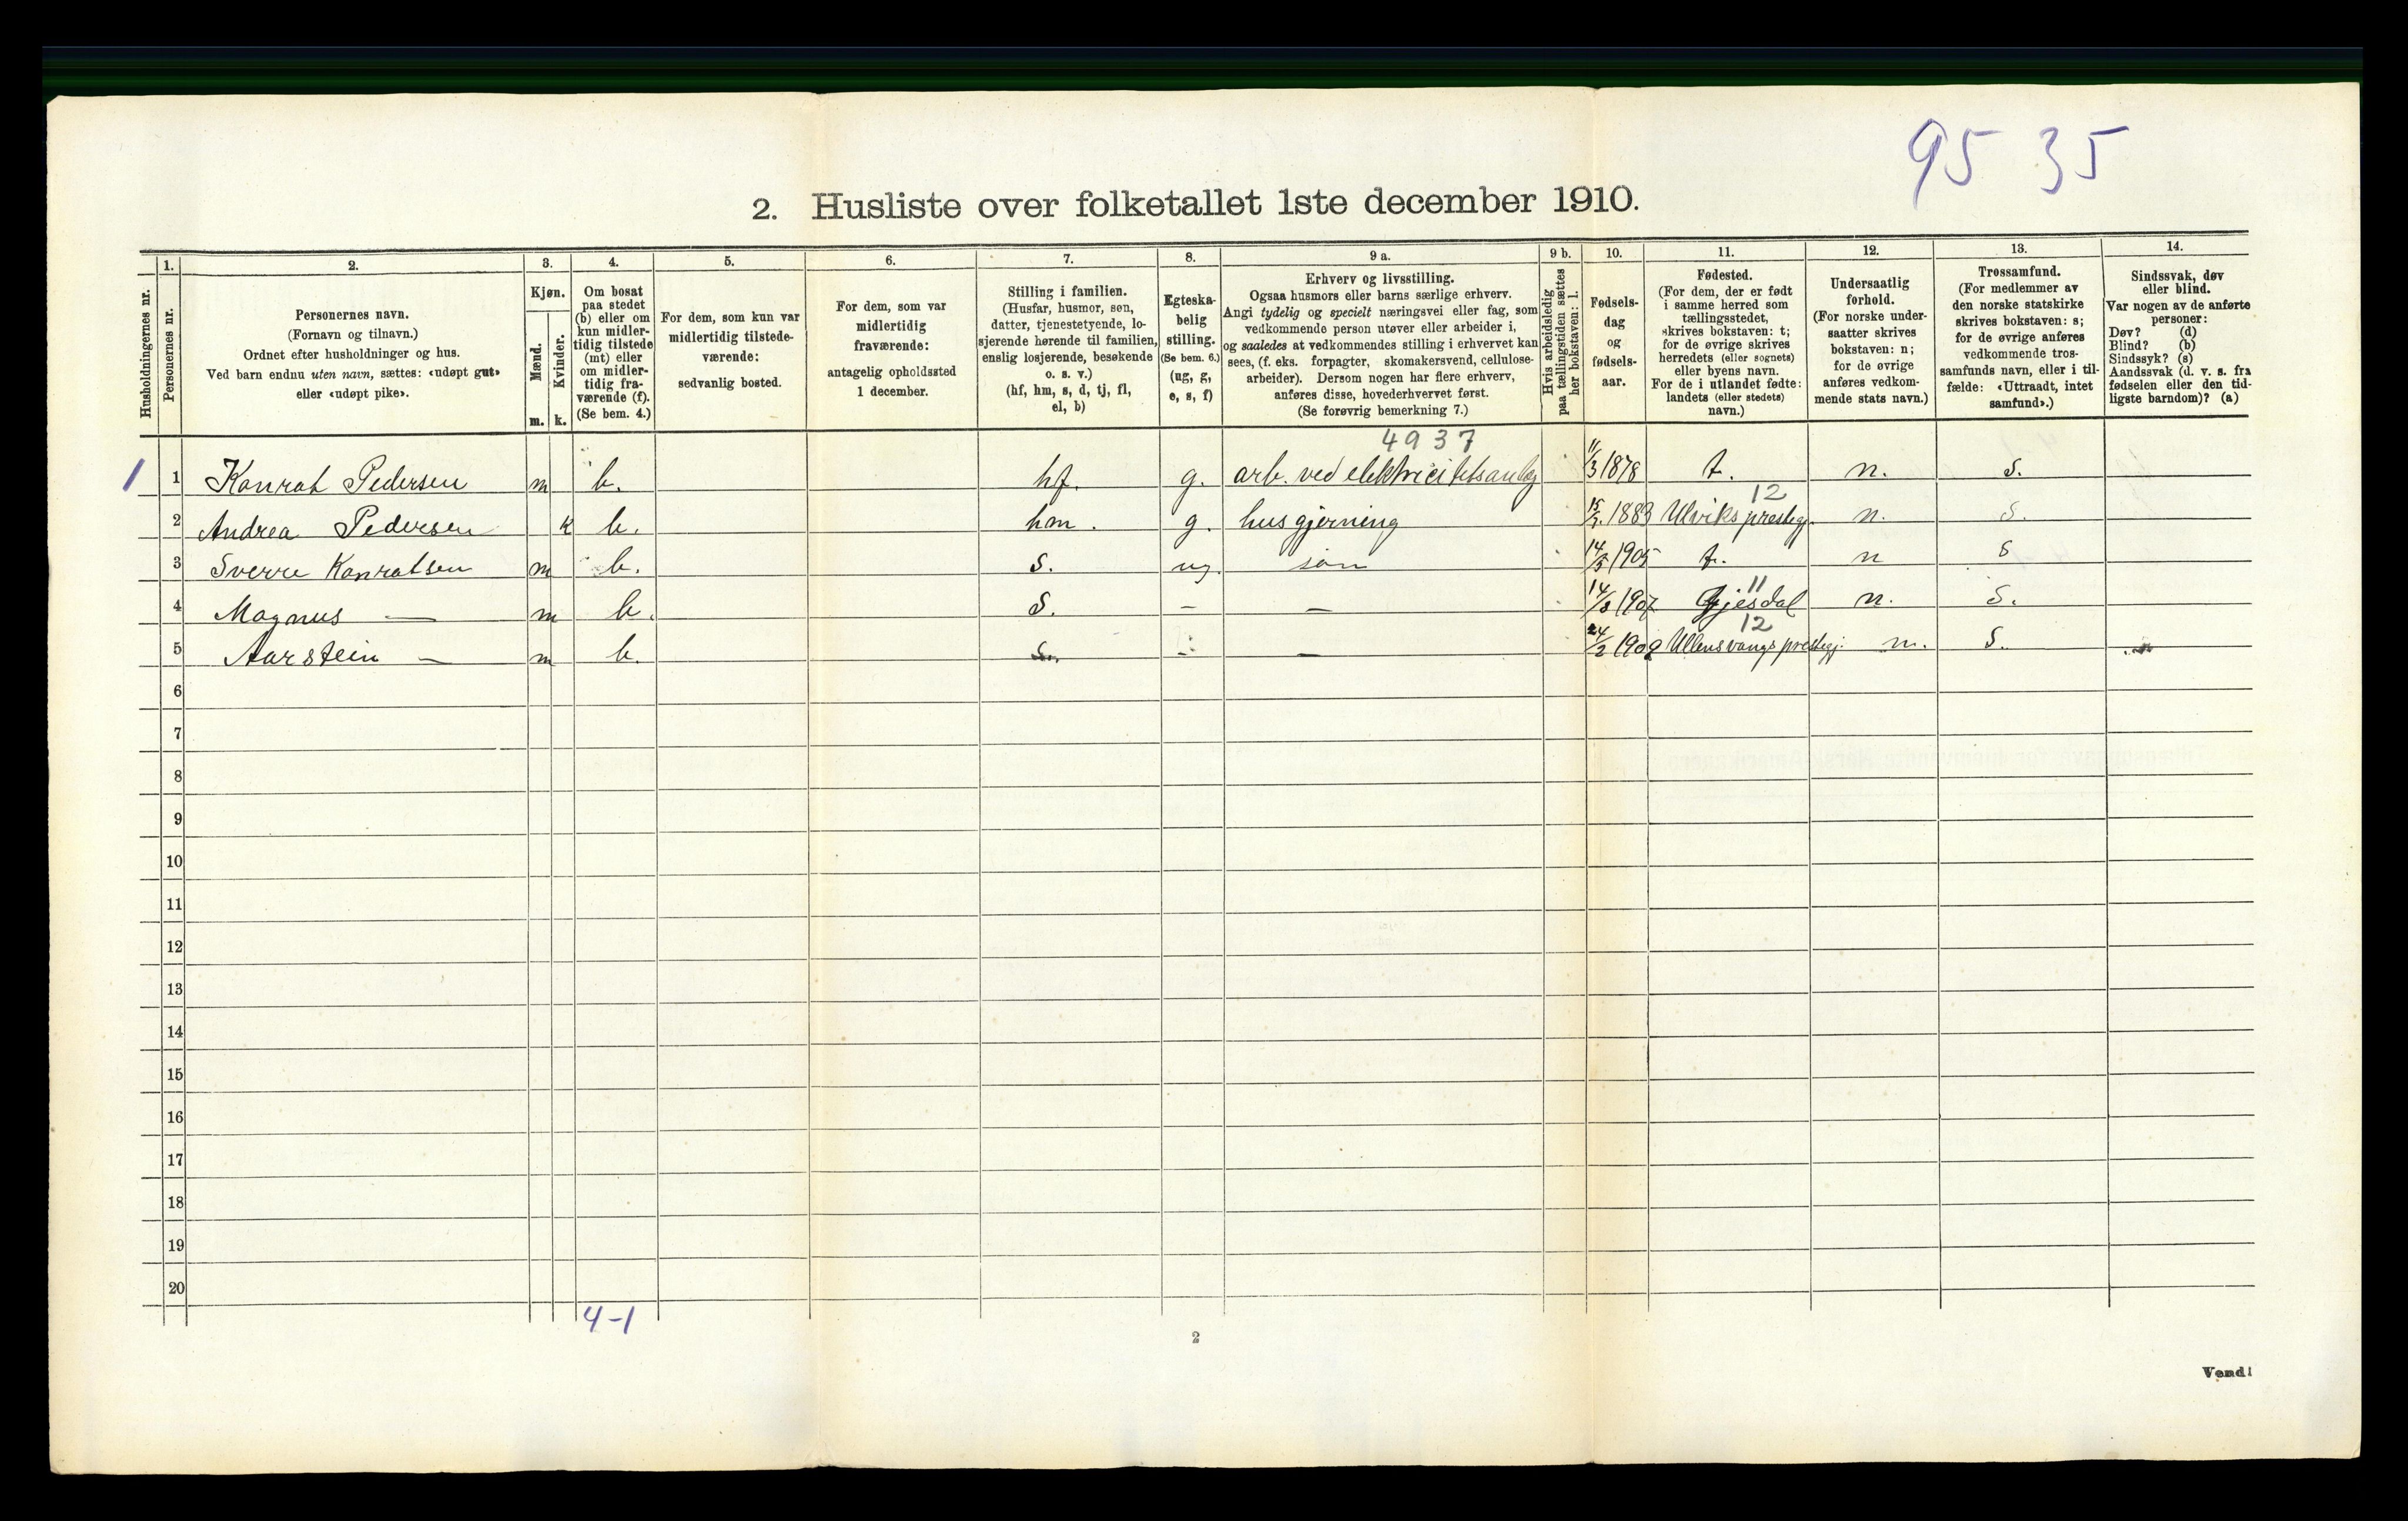 95 35
2. Husliste over folketallet 1ste december 1910.
1. 2. 3. 4. 5. 6. 7. 8. 9 a. 9 b. 10. 11. 12. 13. 14.
Husholdningernes nr.
Personernes nr.
Personernes navn.
(Fornavn og tilnavn.)
Ordnet efter husholdninger og hus.
Ved barn endnu uten navn, sættes: «udøpt gut»
eller «udøpt pike».
Kjøn.
Mænd.
Kvinder.
m. k.
Om bosat
paa stedet
(b) eller om
kun midler-
tidig tilstede
(mt) eller
om midler-
tidig fra-
værende (f).
(Se bem. 4.)
For dem, som kun var
midlertidig tilstede-
værende:
sedvanlig bosted.
For dem, som var
midlertidig
fraværende:
antagelig opholdssted
1 december.
Stilling i familien.
(Husfar, husmor, søn,
datter, tjenestetyende, lo-
sjerende hørende til familien,
enslig losjerende, besøkende
o. s. v.)
(hf, hm, s, d, tj, fl,
el, b)
Egteska-
belig
stilling.
(Se bem. 6.)
(ug, g,
e, s, f)
Erhverv og livsstilling.
Ogsaa husmors eller barns særlige erhverv.
Angi tydelig og specielt næringsvei eller fag, som
vedkommende person utøver eller arbeider i,
og saaledes at vedkommendes stilling i erhvervet kan
sees, (f. eks. forpagter, skomakersvend, cellulose-
arbeider). Dersom nogen har flere erhverv,
anføres disse, hovederhvervet først.
(Se forøvrig bemerkning 7.)
Hvis arbeidsledig
paa tællingstiden sættes
her bokstaven: l.
Fødsels-
dag
og
fødsels-
aar.
Fødested.
(For dem, der er født
i samme herred som
tællingsstedet,
skrives bokstaven: t;
for de øvrige skrives
herredets (eller sognets)
eller byens navn.
For de i utlandet fødte:
landets (eller stedets)
navn.)
Undersaatlig
forhold.
(For norske under-
saatter skrives
bokstaven: n;
for de øvrige
anføres vedkom-
mende stats navn.)
Trossamfund.
(For medlemmer av
den norske statskirke
skrives bokstaven: s;
for de øvrige anføres
vedkommende tros-
samfunds navn, eller i til-
fælde: «Uttraadt, intet
samfund».)
Sindssvak, døv
eller blind.
Var nogen av de anførte
personer:
Døv? (d)
Blind? (b)
Sindssyk? (s)
Aandssvak (d. v. s. fra
fødselen eller den tid-
ligste barndom)? (a)
4937
1 1 Konrat Pedersen m b. hf. g. arb. ved elektricitetsanlæg 11/3 1878 t. n. s.
12
2 Andrea Pedersen k b. hm. g. husgjerning 1883 Ulviks prestegj. n. s.
3 Sverre Konratsen m b. s. ug. søn 14/5 1905 t. n s
11
4 Magnus — m b. s. — — 14/8 1907 Gjesdal n. s.
12
5 Aarstein — m b. s. — — 24/2 1909 Ullensvangs prestegj. n. s.
6
7
8
9
10
11
12
13
14
15
16
17
18
19
20
4-1
2
Vend!